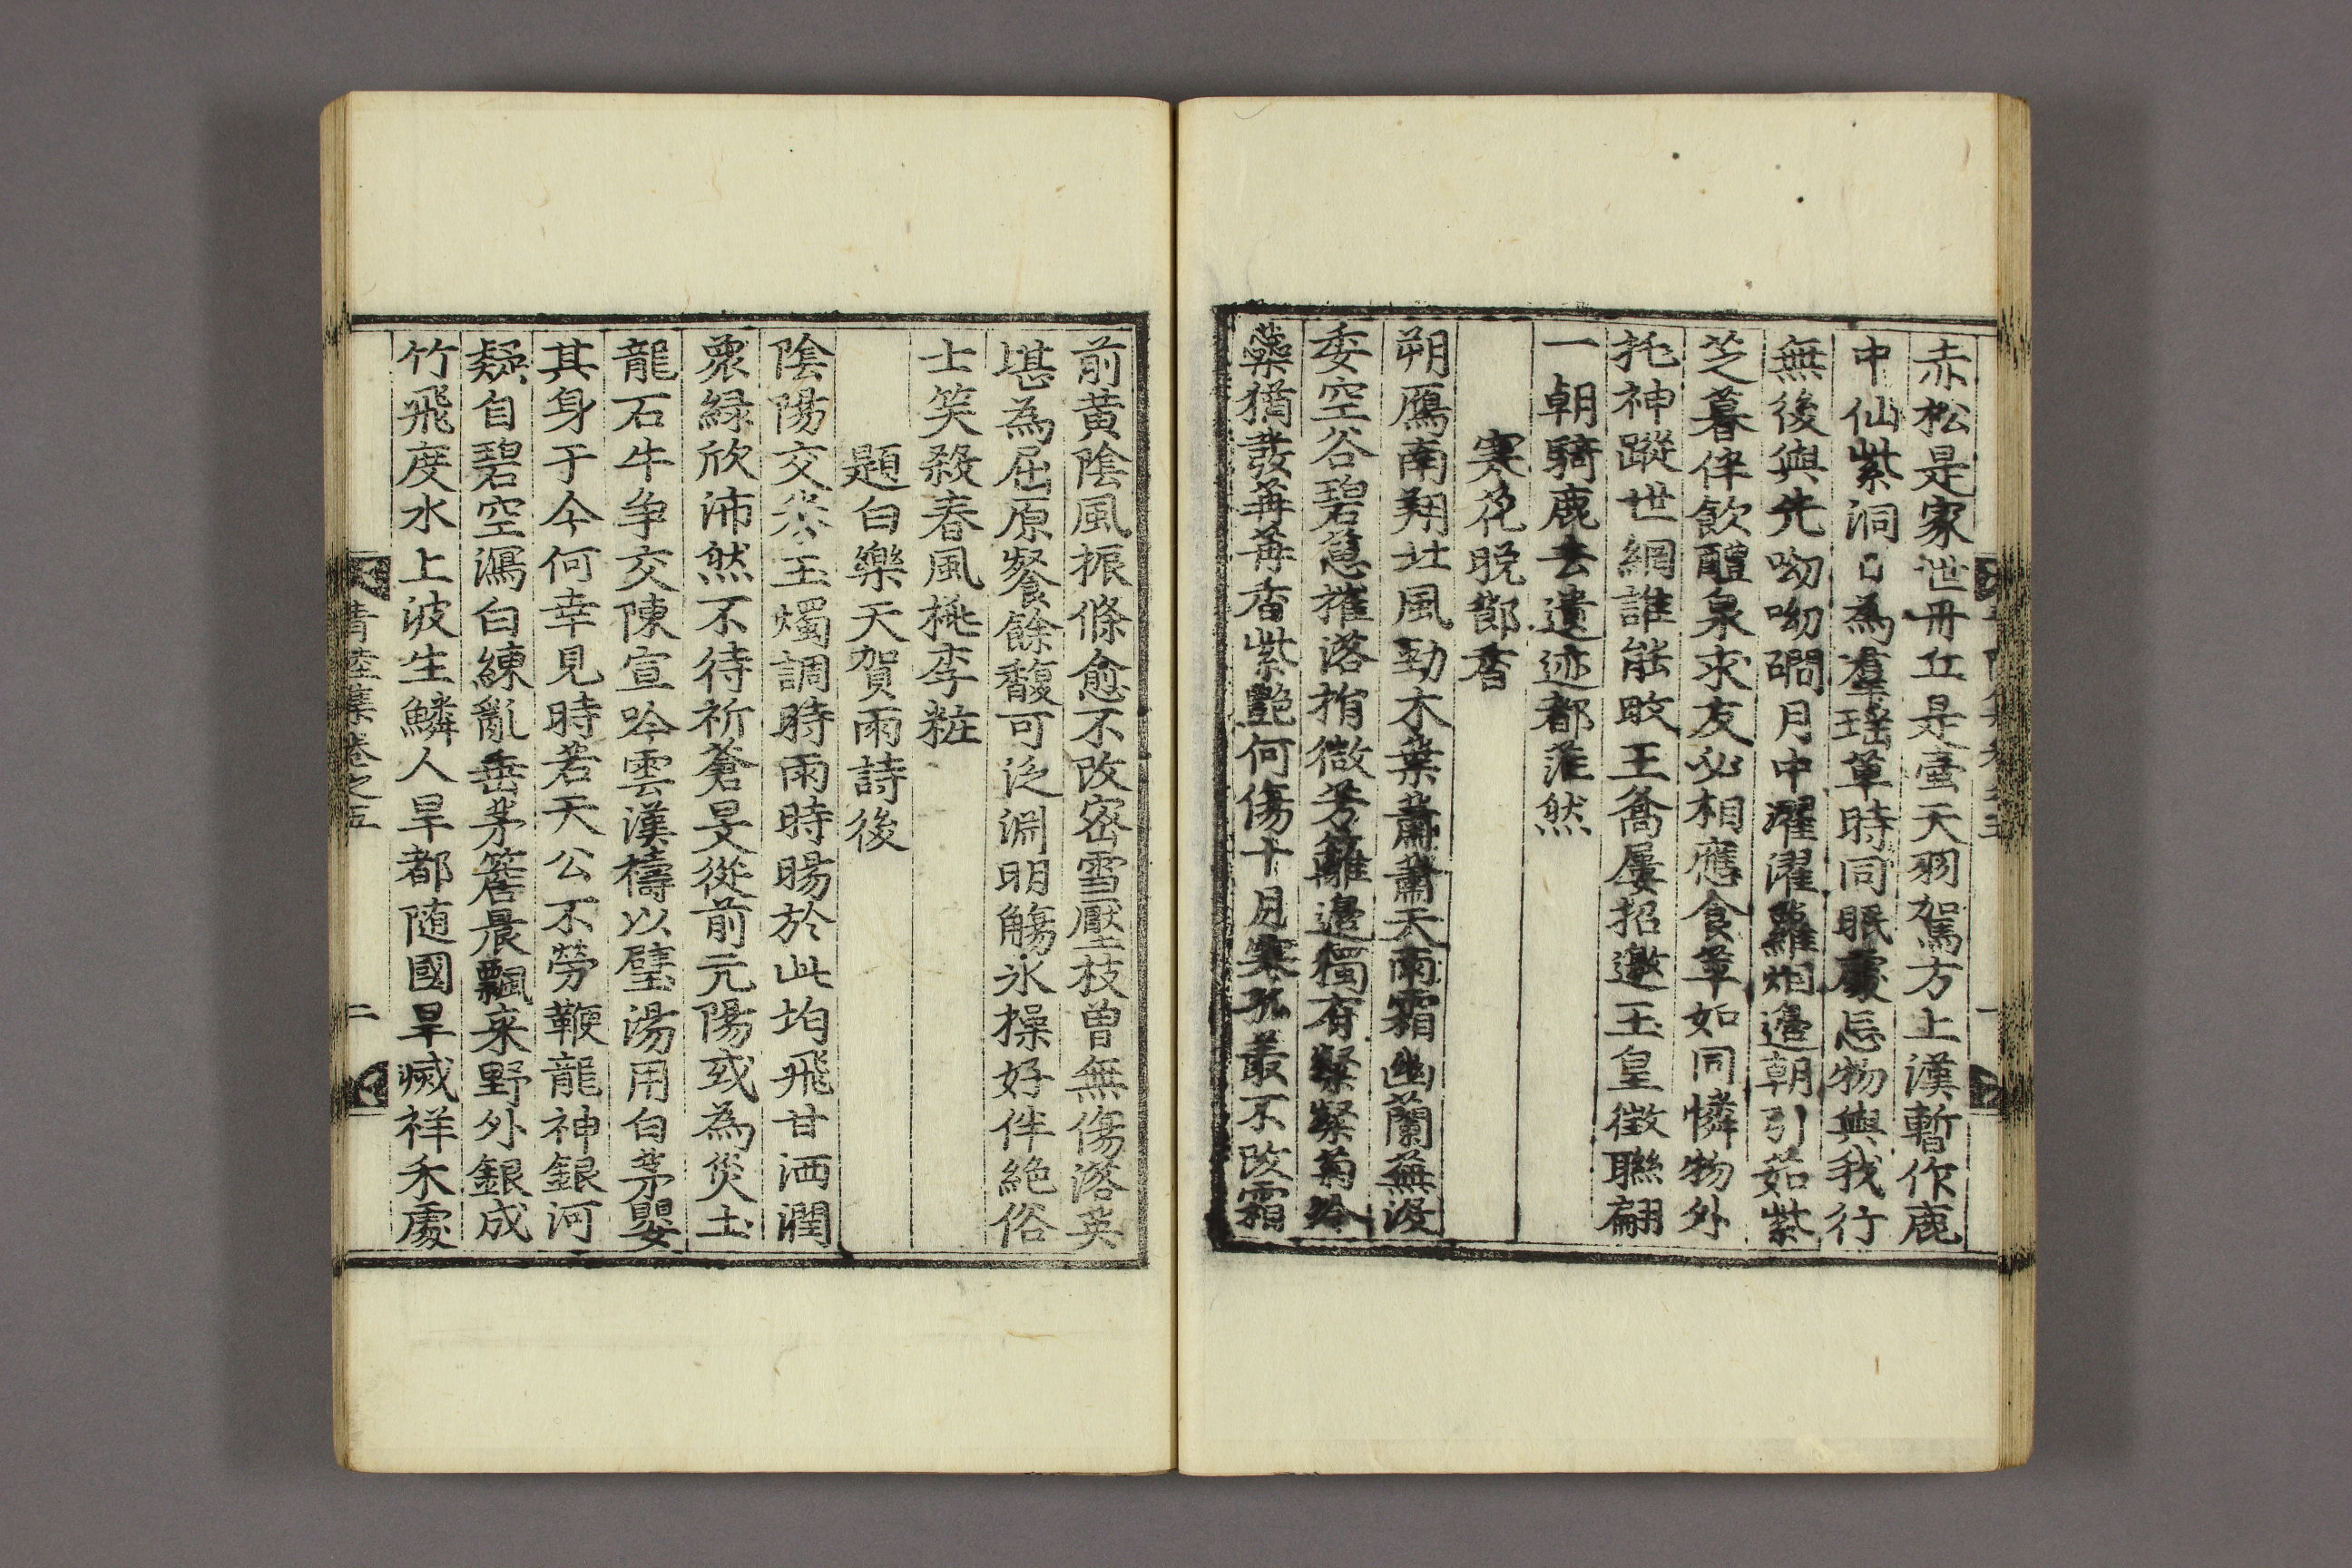 赤松是家世丹丘是壺天羽駕方上漢暫作鹿
中仙紫洞已為羣瑤草時同眠處忘物與我行
無後與先呦呦磵月中濯濯蘿烟邊朝引茹紫
芝暮伴飮醴泉求友必相應食苹如同憐物外
托神蹤世網誰能敗王喬屢招邀玉皇徵聯翩
一朝騎鹿去遺迹都茫然
寒花晩節香
朔鴈南翔北風勁木葉蕭蕭天雨霜幽蘭蕪沒
委空谷碧蕙摧落捐微芳籬邊獨有粲粲菊冷
蘂猶發苒苒香紫艶何傷十月寒孤叢不改霜
前黃陰風振條愈不改密雪壓枝曾無傷落英
堪為屈原餐餘馥可泛淵明觴氷操好伴絶俗
士笑殺春風桃李粧
題白樂天賀雨詩後
陰陽交泰玉燭調時雨時暘於此均飛甘洒潤
衆綠欣沛然不待祈蒼旻從前元陽或為災土
龍石牛争交陳宣吟雲漢禱以璧湯用白茅嬰
其身于今何幸見時若天公不勞鞭龍神銀河
疑自碧空瀉白練亂垂茅簷晨飄来野外銀成
竹飛度水上波生鱗人旱都随國旱滅祥禾處
青陸集卷之五
二